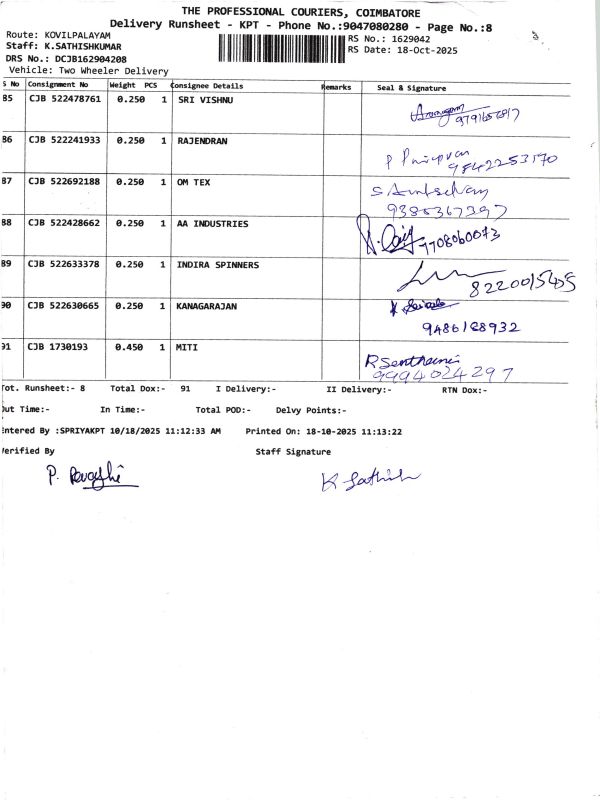 THE PROFESSIONAL COURIERS, COIMBATORE
Delivery Runsheet - KPT - Phone No.:9047080280 - Page No.:8
Route: KOVILPALAYAM
RS No.: 1629042
Staff: K.SATHISHKUMAR
RS Date: 18-Oct-2025
DRS No.: DCJB162904208
Vehicle: Two Wheeler Delivery
S No Consignment No Weight PCS Consignee Details Remarks Seal & Signature
85 CJB 522478761 0.250 1 SRI VISHNU
86 CJB 522241933 0.250 1 RAJENDRAN
9842253170
87 CJB 522692188 0.250 1 OM TEX
9385367397
88 CJB 522428662 0.250 1 AA INDUSTRIES
7708060073
89 CJB 522633378 0.250 1 INDIRA SPINNERS
90 CJB 522630665 0.250 1 KANAGARAJAN
9486188932
91 CJB 1730193 0.450 1 MITI
9994024297
Tot. Runsheet:- 8 Total Dox:- 91 I Delivery:- II Delivery:- RTN Dox:-
Out Time:- In Time:- Total POD:- Delvy Points:-
Entered By :SPRIYAKPT 10/18/2025 11:12:33 AM Printed On: 18-10-2025 11:13:22
Verified By Staff Signature
K Sathish